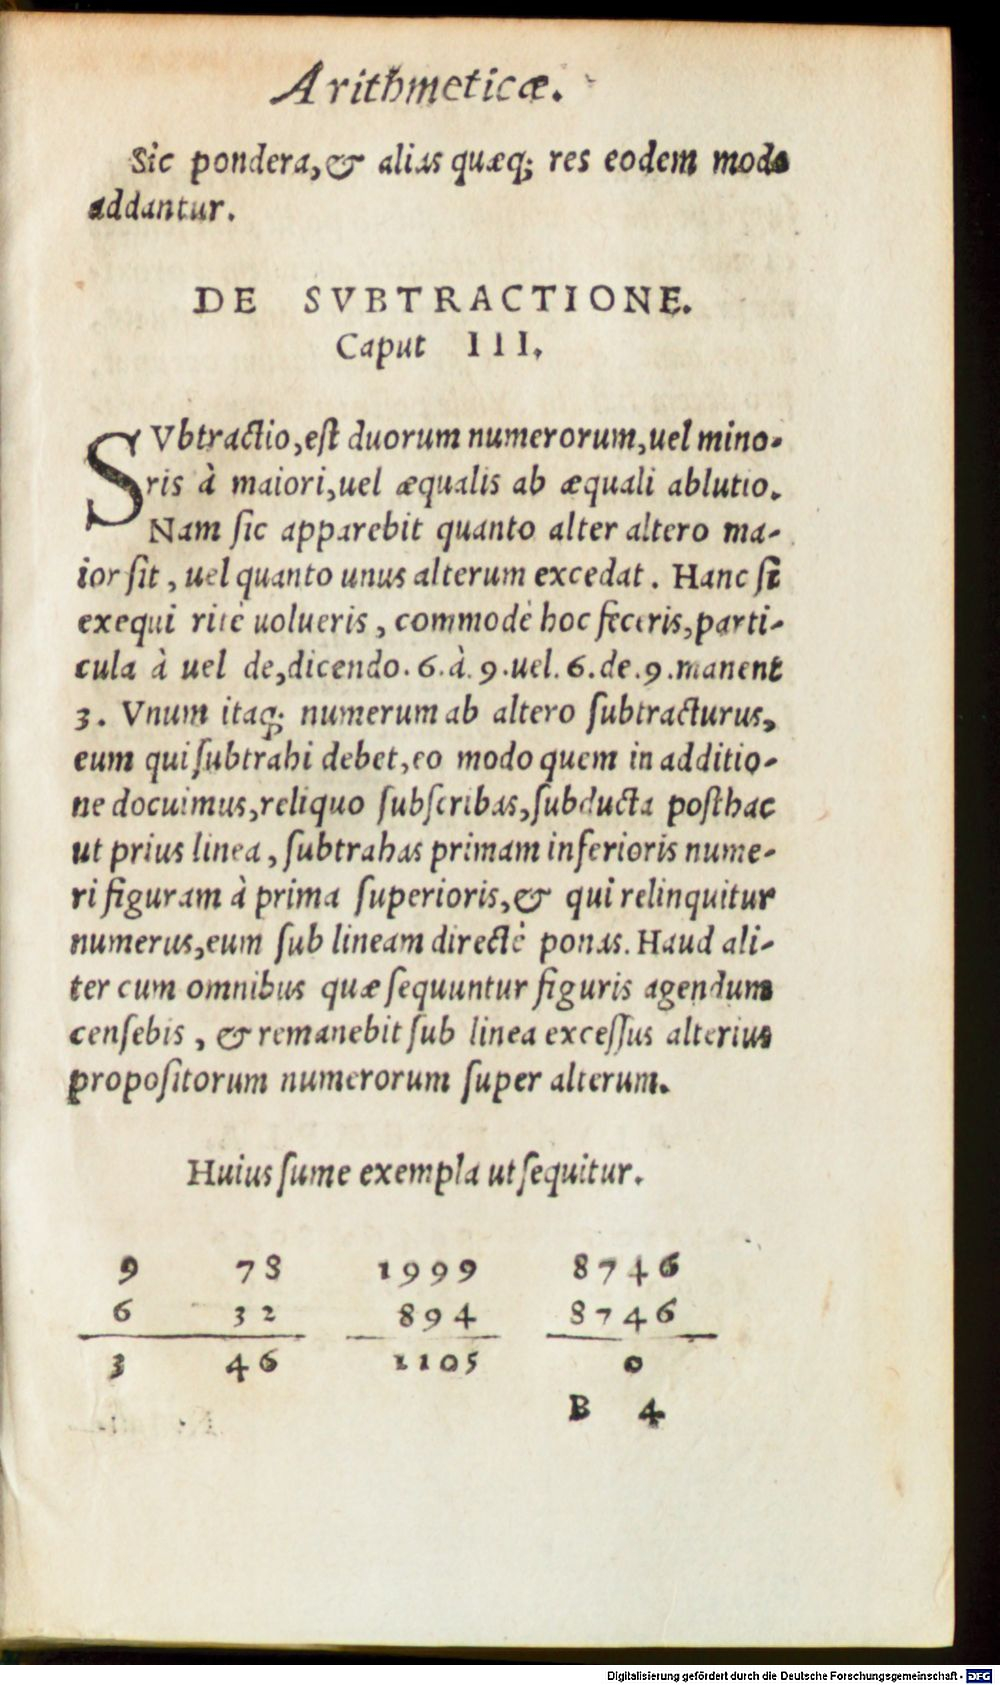 Arithmeticæ.
Sic pondera, & alias quæq; res eodem modo
addantur.
DE SVBTRACTIONE.
Caput III.
SVbtractio, eſt duorum numerorum, uel mino-
ris à maiori, uel æqualis ab æquali ablutio.
Nam ſic apparebit quanto alter altero ma-
ior ſit, uel quanto unus alterum excedat. Hanc ſi
exequi ritè uolueris, commodè hoc feceris, parti-
cula à uel de, dicendo. 6. à. 9. uel. 6. de. 9. manent
3. Vnum itaq; numerum ab altero ſubtracturus,
eum qui ſubtrahi debet, eo modo quem in additio-
ne docuimus, reliquo ſubſcribas, ſubducta poſthac
ut prius linea, ſubtrahas primam inferioris nume-
ri figuram à prima ſuperioris, & qui relinquitur
numerus, eum ſub lineam directè ponas. Haud ali-
ter cum omnibus quæ ſequuntur figuris agendum
cenſebis, & remanebit ſub linea exceſſus alterius
propoſitorum numerorum ſuper alterum.
Huius ſume exempla ut ſequitur.
9 78 1999 8746
6 32 894 8746
3 46 1105 0
B 4
Digitalisierung gefördert durch die Deutsche Forschungsgemeinschaft - DFG